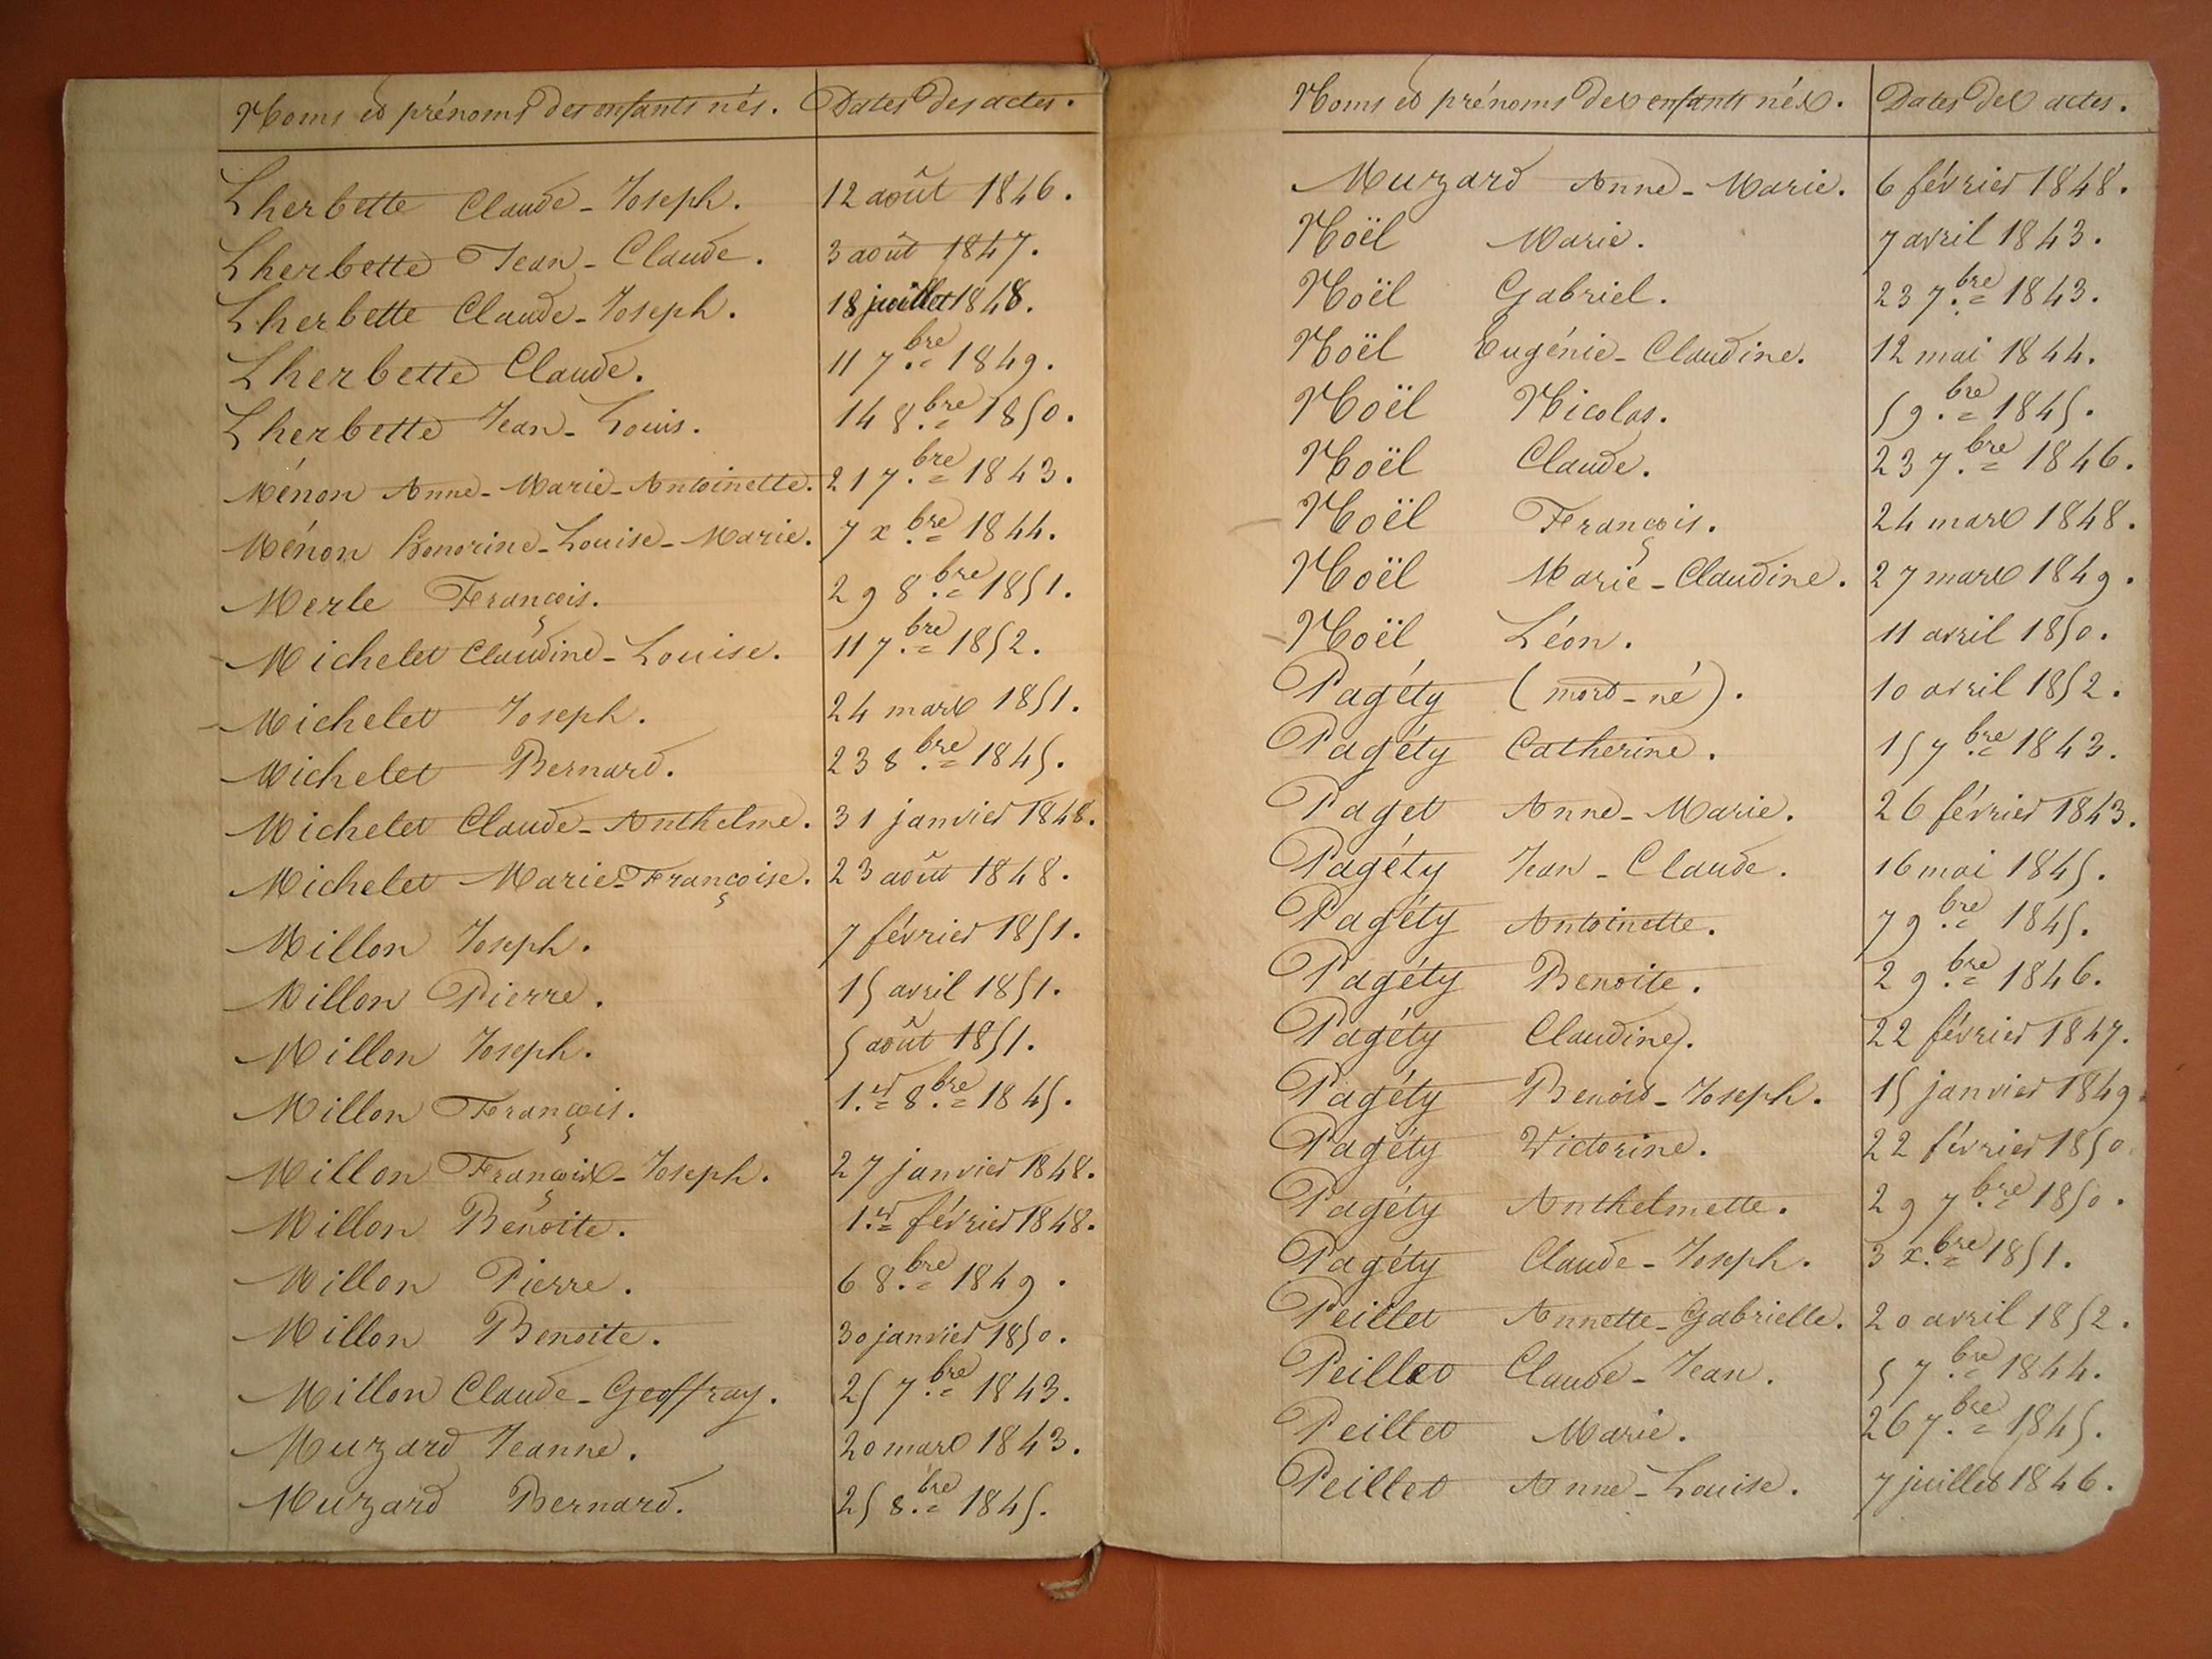 Noms et prénoms des enfants nés. Dates des actes.
Lherbette Claude-Joseph. 12 août 1846.
Lherbette Jean-Claude. 3 août 1847.
Lherbette Claude-Joseph. 18 juillet 1848.
Lherbette Claude. 11 7.bre 1849.
Lherbette Jean-Louis. 14 8.bre 1850.
Ménon Anne-Marie-Antoinette. 21 7.bre 1843.
Ménon Honorine-Louise-Marie. 7 x.bre 1844.
Merle François. 29 8.bre 1851.
Michelet Claudine-Louise. 11 7.bre 1852.
Michelet Joseph. 24 mars 1851.
Michelet Bernard. 23 8.bre 1845.
Michelet Claude-Anthelme. 31 janvier 1848.
Michelet Marie-Françoise. 23 août 1848.
Millon Joseph. 7 février 1851.
Millon Pierre. 15 avril 1851.
Millon Joseph. 5 août 1851.
Millon François. 1.er 8.bre 1845.
Millon François-Joseph. 27 janvier 1848.
Millon Benoite. 1.er février 1848.
Millon Pierre. 6 8.bre 1849.
Millon Benoite. 30 janvier 1850.
Millon Claude-Geoffray. 25 7.bre 1843.
Muzard Jeanne. 20 mars 1843.
Muzard Bernard. 25 8.bre 1845.
Noms et prénoms des enfants nés. Dates des actes.
Muzard Anne-Marie. 6 février 1848.
Noël Marie. 7 avril 1843.
Noël Gabriel. 23 7.bre 1843.
Noël Eugénie-Claudine. 12 mai 1844.
Noël Nicolas. 5 9.bre 1845.
Noël Claude. 23 7.bre 1846.
Noël François. 24 mars 1848.
Noël Marie-Claudine. 27 mars 1849.
Noël Léon. 11 avril 1850.
Pagéty (mort-né). 10 avril 1852.
Pagéty Catherine. 15 7.bre 1843.
Paget Anne-Marie. 26 février 1843.
Pagéty Jean-Claude. 16 mai 1845.
Pagéty Antoinette. 7 9.bre 1845.
Pagéty Benoite. 2 9.bre 1846.
Pagéty Claudine. 22 février 1847.
Pagéty Benoit-Joseph. 15 janvier 1849.
Pagéty Victorine. 22 février 1850.
Pagéty Anthelmette. 29 7.bre 1850.
Pagéty Claude-Joseph. 3 x.bre 1851.
Peillet Annette-Gabrielle. 20 avril 1852.
Peillet Claude-Jean. 5 7.bre 1844.
Peillet Marie. 26 7.bre 1845.
Peillet Anne-Louise. 7 juillet 1846.